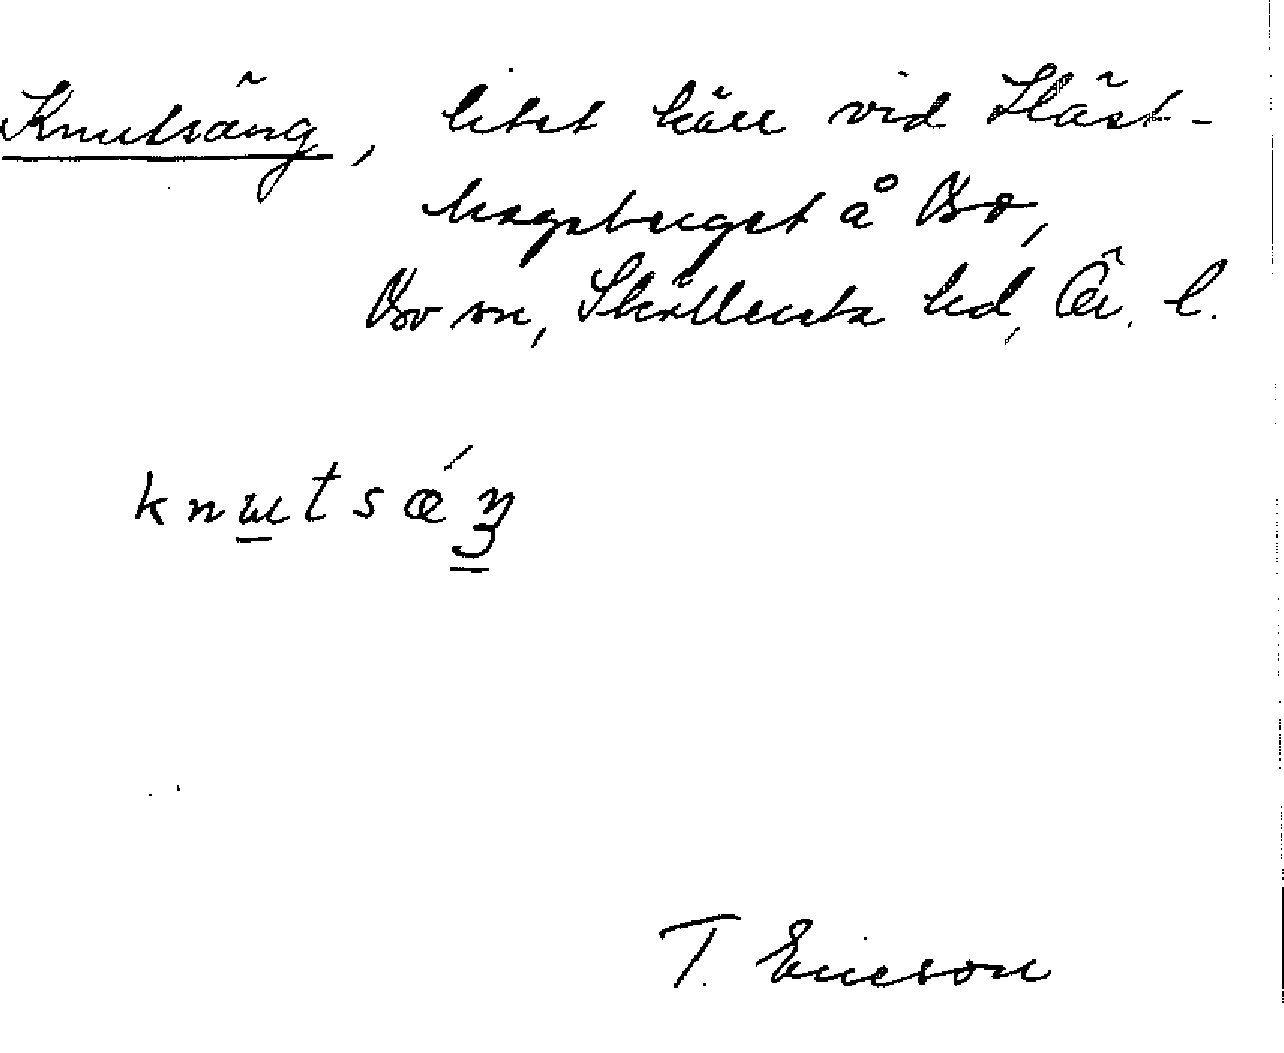 Knutsäng, litet kärr vid Häst-
hagsberget å Bo,
Bo sn, Sköllersta hd, Ör. l.
knutsǽŋ
T. Ericson